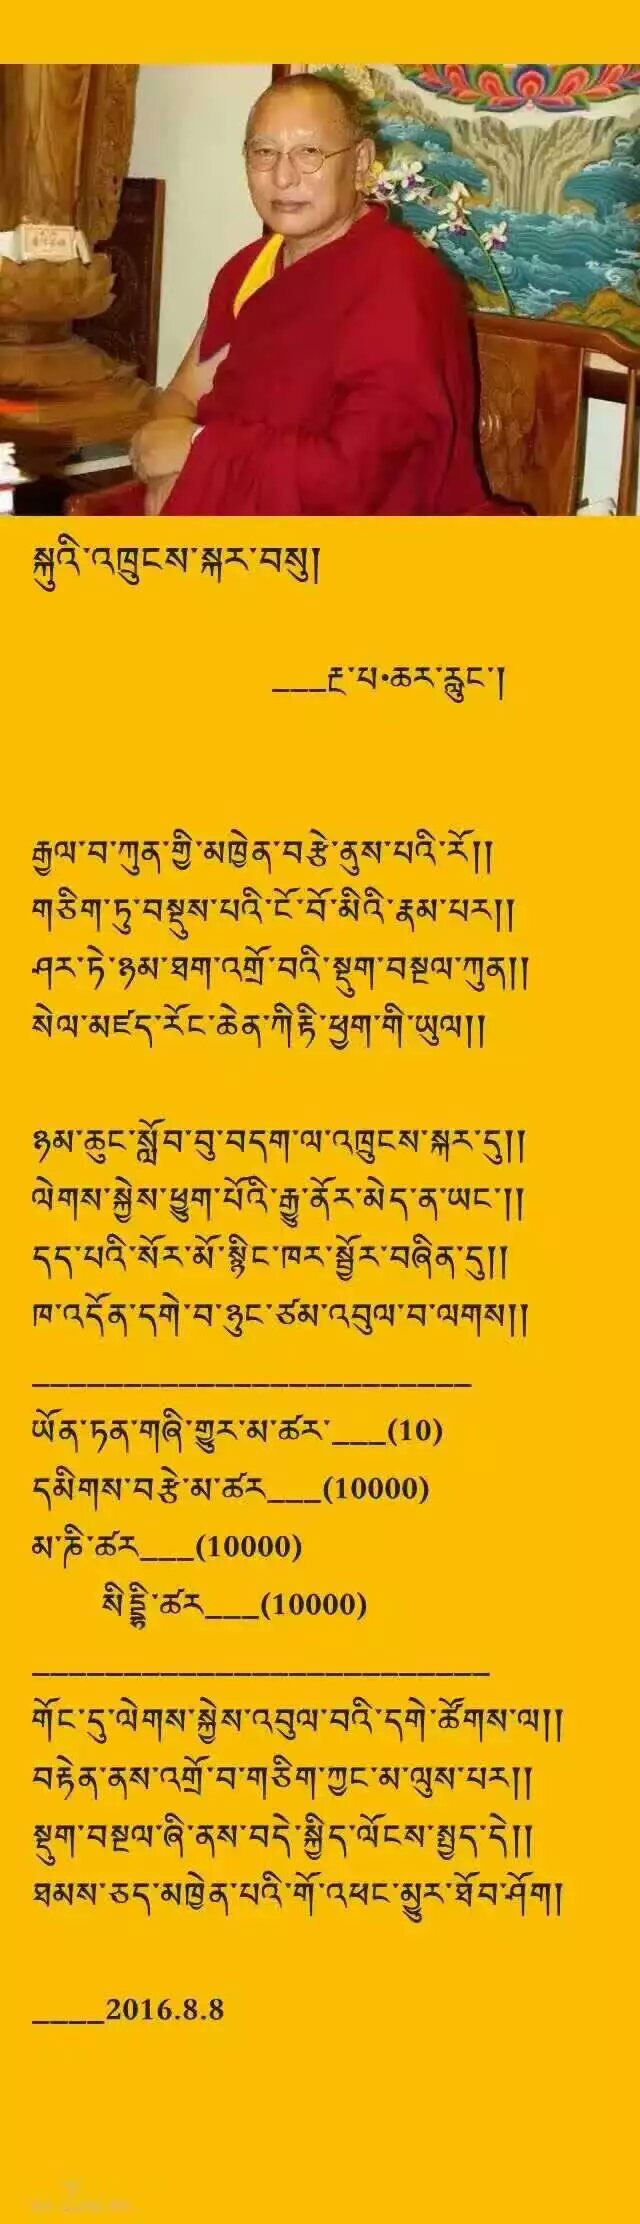 སྐུའི་འཁྲུངས་སྐར་བསུ།
___རྔ་པ·ཆར་རླུང་།
རྒྱལ་བ་ཀུན་གྱི་མཁྱེན་བརྩེ་ནུས་པའི་རོ།།
གཅིག་ཏུ་བསྡུས་པའི་ངོ་བོ་མིའི་རྣམ་པར།།
ཤར་ཏེ་ཉམ་ཐག་འགྲོ་བའི་སྡུག་བསྔལ་ཀུན།།
སེལ་མཛད་རོང་ཆེན་ཀིརྟི་ཕྱག་གི་ཡུལ།།
ཉམ་ཆུང་སློབ་བུ་བདག་ལ་འཁྲུངས་སྐར་དུ།།
ལེགས་སྐྱེས་ཕྱུག་པོའི་རྒྱུ་ནོར་མེད་ན་ཡང་།།
དད་པའི་སོར་མོ་སྙིང་ཁར་སྦྱོར་བཞིན་དུ།།
ཁ་འདོན་དགེ་བ་ཉུང་ཙམ་འབུལ་བ་ལགས།།
ཡོན་ཏན་གཞི་གྱུར་མ་ཚར་___(10)
དམིགས་བརྩེ་མ་ཚར___(10000)
མ་ཎི་ཚར___(10000)
སིདྡྷི་ཚར___(10000)
གོང་དུ་ལེགས་སྐྱེས་འབུལ་བའི་དགེ་ཚོགས་ལ།།
བརྟེན་ནས་འགྲོ་བ་གཅིག་ཀྱང་མ་ལུས་པར།།
སྡུག་བསྔལ་ཞི་ནས་བདེ་སྐྱིད་ལོངས་སྤྱད་དེ།།
ཐམས་ཅད་མཁྱེན་པའི་གོ་འཕང་མྱུར་ཐོབ་ཤོག།
____2016.8.8